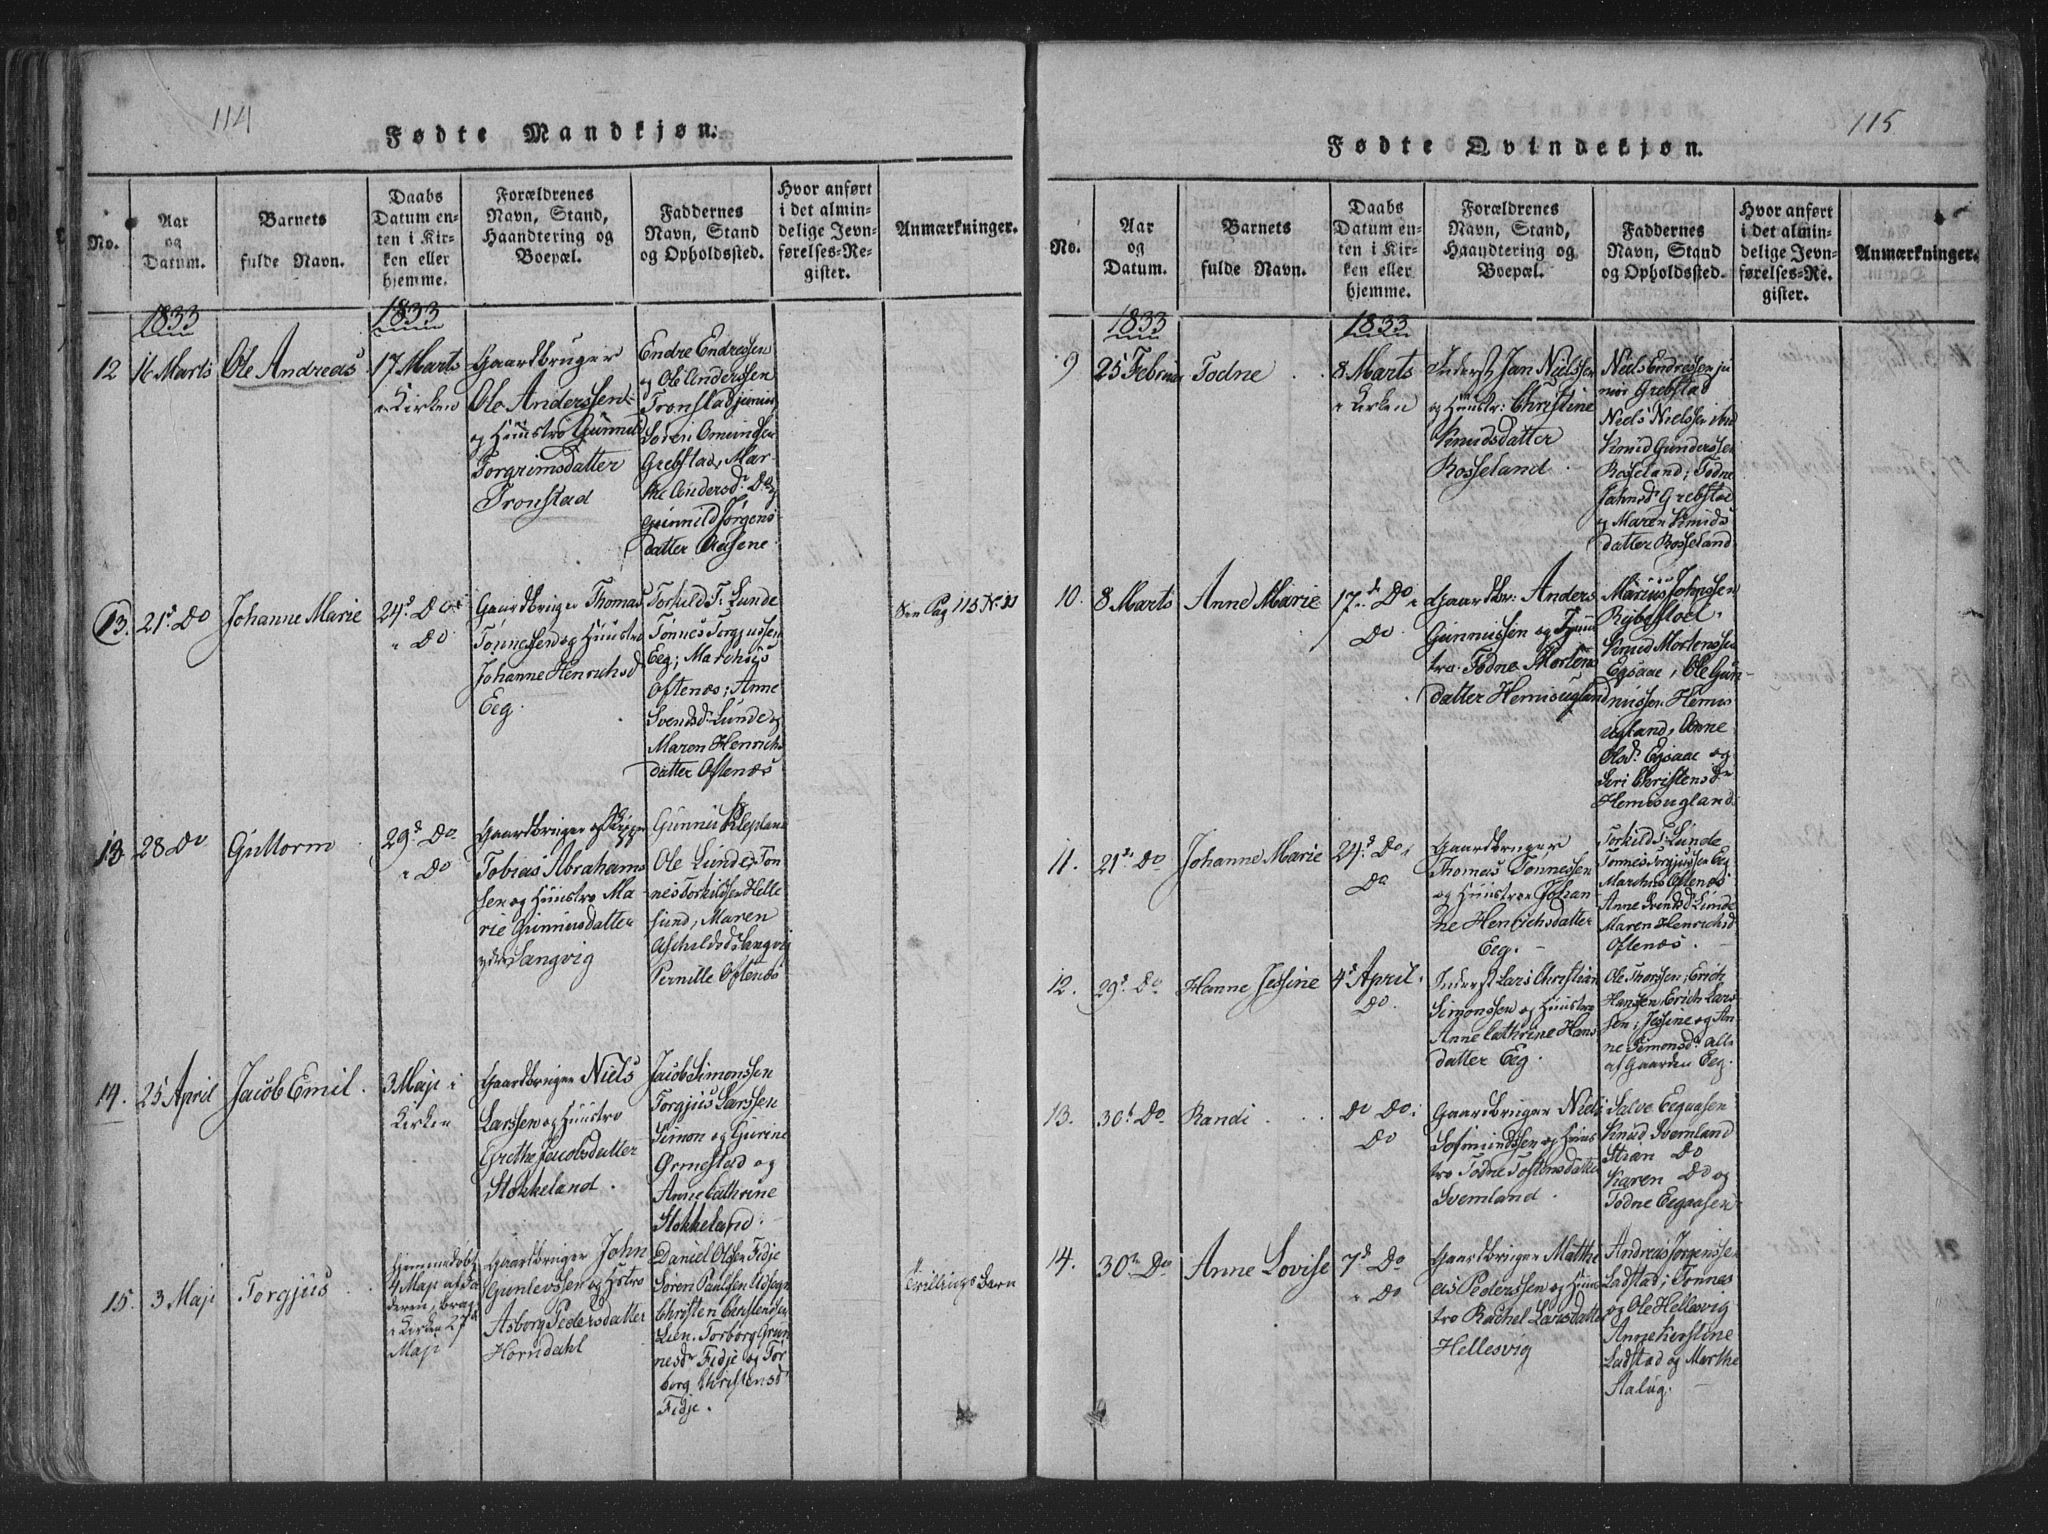 114
Fødte Mandkjøn.
No.
Aar
og
Datum.
Barnets
fulde Navn.
Daabs
Datum en-
ten i Kir-
ken eller
hjemme.
Forældrenes
Navn, Stand,
Haandtering og
Boepæl.
Faddernes
Navn, Stand
og Opholdssted.
Hvor anført
i det almin-
delige Jevn-
førelses-Re-
gister.
Anmærkninger.
1833
1833
12
16 Marts
Ole Andreas
17 Marts
i Kirken
Gaardbruger
Ole Anderssen
og Huustro Gunnild
Torgrimsdatter
Tronstad
Endre Endressen
og Ole Anderssen
Tronstad junior
Søren Omundsen
Grebstad, Mar-
the Andersdr Do og
Gunnild Jørgens-
datter Aasene
13.
21d Do
Johanne Marie
24d Do i
Do
Gaardbruger Thomas
Tønnessen og Huustro
Johanne Henrichsd
Eeg.
Torkild T. Lunde
Tønnes Torgjussen
Eeg; Marchus
Oftenæs; Anne
Svendsd Lunde og
Maren Henrichs
datter Oftenæs
See Pag 115 No 11
13
28 Do
Guttorm
29d Do
i Do
Gaardbruger og Skipper
Tobias Abrahams
sen og Huustro Ma
rie Gunnusdatter
ydre Langvig
Gunnu Klepland
Ole Lunde, Ton
nes Torkildsen Helle
sund, Maren
Aschildsd Langvig
Pernille Oftenæs
14.
25 April
Jacob Emil.
3 Maji i
Kirken
Gaardbruger Niels
Larssen og Huustro
Grethe Jacobsdatter
Stokkeland.
Jacob Simonssen
Torgjus Larssen
Simon og Gurine
Ørmestad og
Anne Cathrine
Stokkeland.
15.
3 Maji
Torgjus
Hjemmedøbt
4 Maji af Fa
deren, bragt
i Kirken 27d
Maji
Gaardbruger John
Gunlevssen og Hstro
Asborg Pedersdatter
Horndahl
Daniel Olsen Fidje
Søren Paulsen Udsogn
Christen Christensen
Lien. Torborg Grun
nesdr Fidje og Tor
borg Christensd
Fidje.
Tvillings Børn
115
Fødte Qvindekjøn.
No.
Aar
og
Datum.
Barnets
fulde Navn.
Daabs
Datum en-
ten i Kir-
ken eller
hjemme.
Forældrenes
Navn, Stand,
Haandtering og
Boepæl.
Faddernes
Navn, Stand
og Opholdssted.
Hvor anført
i det almin-
delige Jevn-
førelses-Re-
gister.
Anmærkninger.
1833
1833
9
25 Februar
Todne
8 Marts
i Kirken
Inderst Jan Nielssen
og Huustr: Christine
Knudsdatter
Rosseland
Niels Endressen ju
nior Grebstad
Niels Nielssen ibd
Knud Gunderssen
Rosseland; Todne
Jahnsd Grebstad
og Maren Knuds
datter Rosseland
10.
8 Marts
Anne Marie
17d Do i
Do
Gaardbr: Anders
Gunnussen og Huus
tro Todne Mortens
datter Hemisugland
Marius Johnssen
Rybestoel.
Knud Mortenssen
Egsaae, Ole Gun-
nussen Hemis
ugland, Anne
Olsdr Egsaae og
Seri Christensdr
Hemisugland
11.
21de Do
Johanne Marie
24d Do i
Do
Gaardbruger
Thomas Tønnessen
og Huustroe Johan
ne Henrichsdatter
Eeg.
Torkild T: Lunde
Tønnes Torgjussen Eeg
Marchus Oftenæs
Anne Svendsd Lunde
Maren Henrichsd
Oftenæs.
12.
29d Do
Hanne Jessine
4d April.
Do
Inderst Lars Christian
Simonssen og Huustro
Anne Cathrine Hans
datter Eeg.
Ole Thorssen; Erich
Hanssen; Erich Lars
sen; Jessine og An
ne Simonsdr alle
af Gaarden Eeg.
13.
30d Do
Randi
Do Do i
Do
Gaardbruger Niels
Sofmundssen og Huus
tro Todne Tostensdatter
Svemland.
Salve Eegaasen
Knud Svemland
Stian Do
Karen Do og
Todne Eegaasen
14.
30te Do
Anne Lovise
7d Do
i Do
Gaardbruger Mathi
as Pederssen og Huus
tro Rachel Larsdatter
Hellesvig
Andreas Jørgenssen
Ladstad; Tønnes
og Ole Hellesvig
Anne Kirstine
Ladstad og Marthe
Aalug.